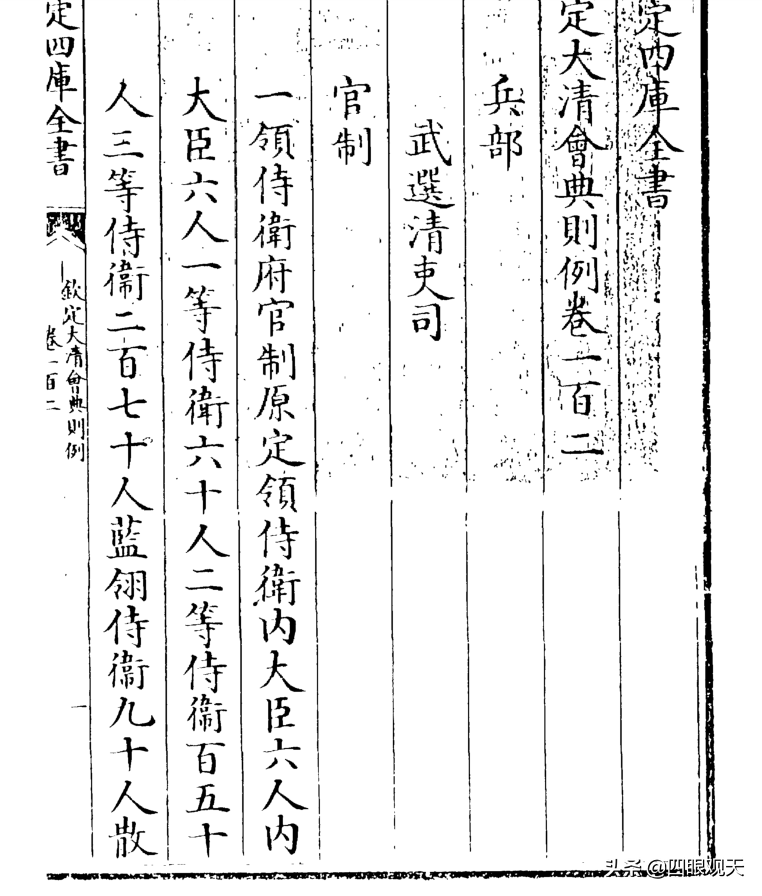 定四庫全書
定大清會典則例卷一百二
兵部
武選清吏司
官制
一領侍衛府官制原定領侍衛内大臣六人内
大臣六人一等侍衛六十人二等侍衛百五十
人三等侍衛二百七十人藍翎侍衛九十人散
定四庫全書
欽定大清會典則例
卷一百二
一
头条 @四眼观天